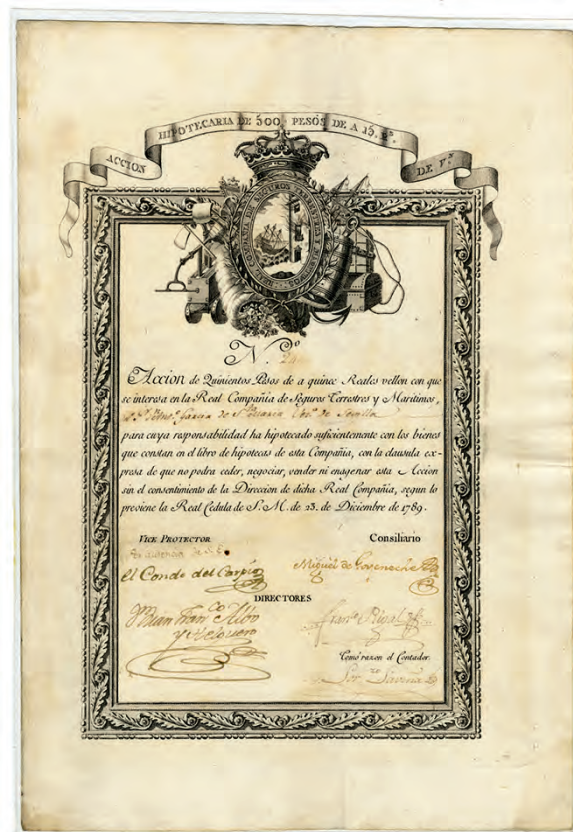 ACCION HIPOTECARIA DE 500 PESOS DE A 15. Rˢ. DE Vⁿ.
REAL COMPAÑIA DE SEGUROS TERRESTRES
N.º
Accion de Quinientos Pesos de a quince Reales vellon con que
se interesa en la Real Compañia de Seguros Terrestres y Maritimos,
Garcia de de Sevilla
para cuya responsabilidad ha hipotecado suficientemente con los bienes
que constan en el libro de hipotecas de esta Compañia, con la clausula ex-
presa de que no podra ceder, negociar, vender ni enagenar esta Accion
sin el consentimiento de la Direccion de dicha Real Compañia, segun lo
previene la Real Cedula de S. M. de 23. de Diciembre de 1789.
VICE PROTECTOR
Consiliario
El Conde del Carpio
Miguel de
DIRECTORES
Juan Franᶜᵒ
Franᶜᵒ
Tomó razon el Contador.